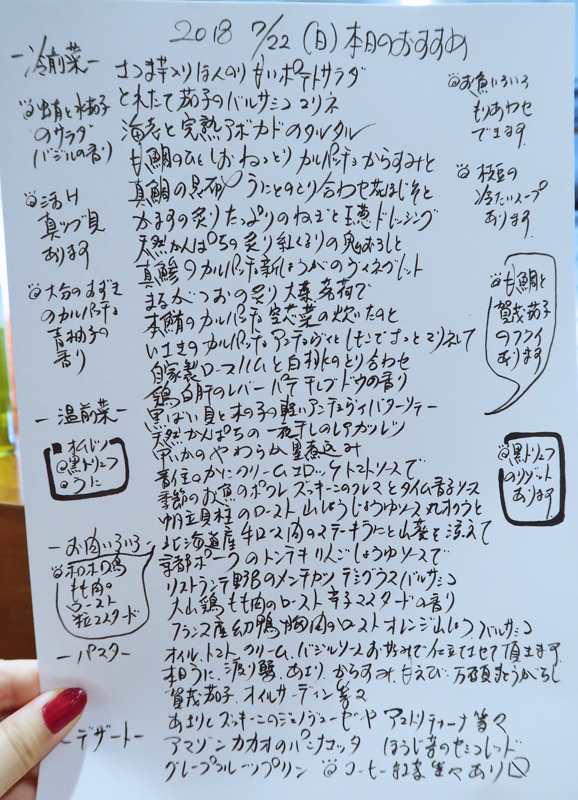 2018 7/22 (日) 本日のおすすめ
ー冷前菜ー
さつま芋入りほんのり甘いポテトサラダ
とれたて茄子のバルサミコマリネ
海老と完熟アボカドのタルタル
甘鯛のひとしおねっとりカルパッチョからすみと
真鯛の昆布〆うにとのとり合わせ花ほじそと
かますの炙りたっぷりのねぎと玉葱ドレッシング
天然かんぱちの炙り紅くるりの鬼おろしと
真鯵のカルパッチョ新しょうがのヴィネグレット
まるがつおの炙り大葉茗荷で
本鮪のカルパッチョ空芯菜の炊いたのと
いさきのカルパッチョアンディヴィとしたてでさっとマリネして
自家製ロースハムと白桃のとり合わせ
鶏白肝のレバーパテ干しブドウの香り
@出有と水茄子
のサラダ
バジルの香り
@活け
真ツブ貝
あります
@大分のすずき
のカルパッチョ
青柚子の
香り
@お魚いろいろ
もりあわせ
できます
@枝豆の
冷たいスープ
あります
@甘鯛と
賀茂茄子
のフライ
あります
ー温前菜ー
黒ばい貝と木の子の軽いアンチョヴィバターソテー
天然かんぱちの一夜干しのレアカツレツ
黒いかのやわらか墨煮込み
香住のかにのクリームコロッケトマトソースで
季節のお魚のポワレズッキーニのクレマとタイム香るソース
帆立貝柱のロースト山しょうじょうゆソース丸オクラと
@黒トリュフ
@うに
@黒トリュフ
のリゾット
あります
ーお肉いろいろー
北海道産牛ロース肉のステーキうにと山葵を添えて
京都ポークのトンテキりんごじょうゆソースで
リストランテ野呂のメンチカツデミグラスバルサミコ
大山鶏もも肉のロースト辛子マスタードの香り
フランス産幼鴨胸肉のローストオレンジ山しょうバルサミコ
@ホロホロ鳥
もも肉の
ロースト
粒マスタード
ーパスター
オイル、トマト、クリーム、バジルソースお好みで仕立てさせて頂きます
本日うに、渡り蟹、あさり、からすみ、甘えび、万願寺とうがらし
賀茂茄子、オイルサーディン等々
あさりとズッキーニのジェノヴェーゼやアマトリチャーナ等々
ーデザートー
アマゾンカカオのパンナコッタ ほうじ茶のセミフレッド
グレープフルーツプリン @コーヒー紅茶等々あり〼